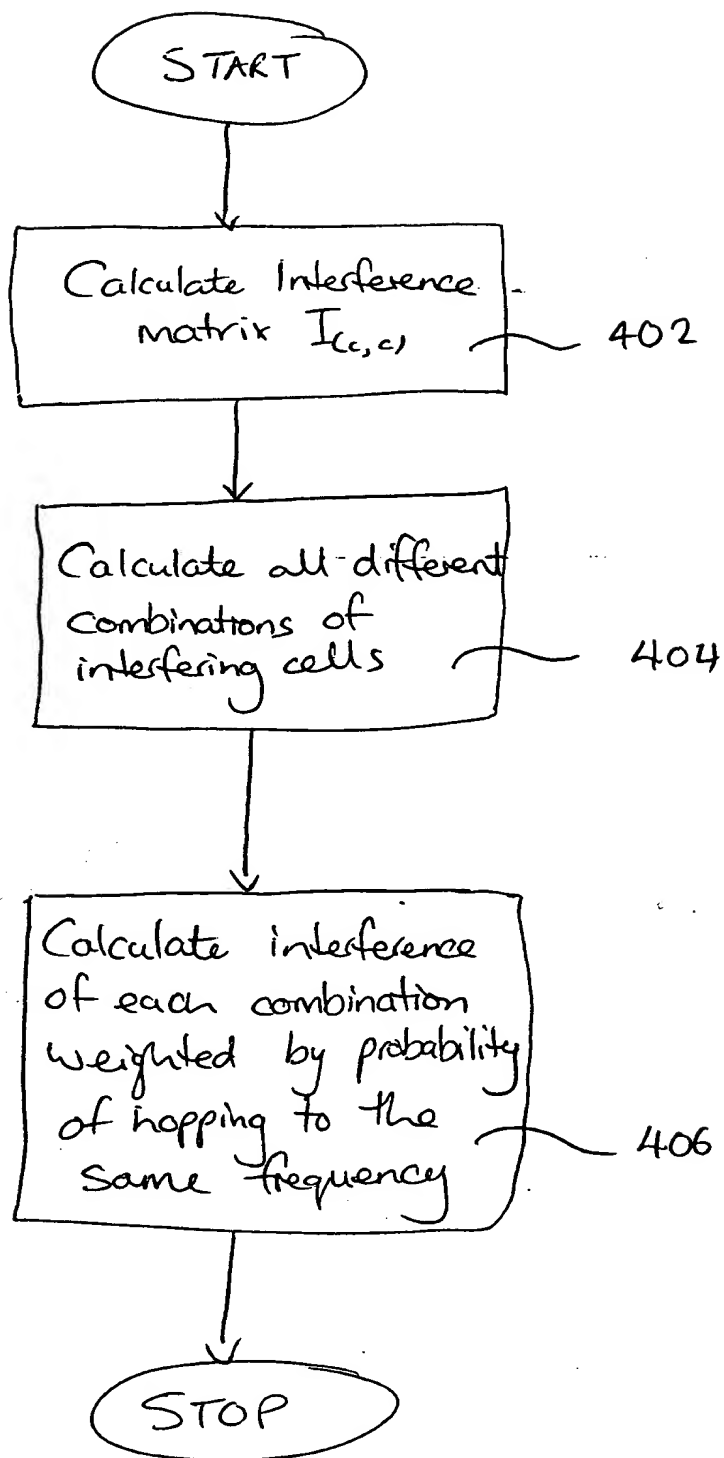 START
Calculate Interference
matrix I(c,c)
402
Calculate all different
combinations of
interfering cells
404
Calculate interference
of each combination
weighted by probability
of hopping to the
same frequency
406
STOP